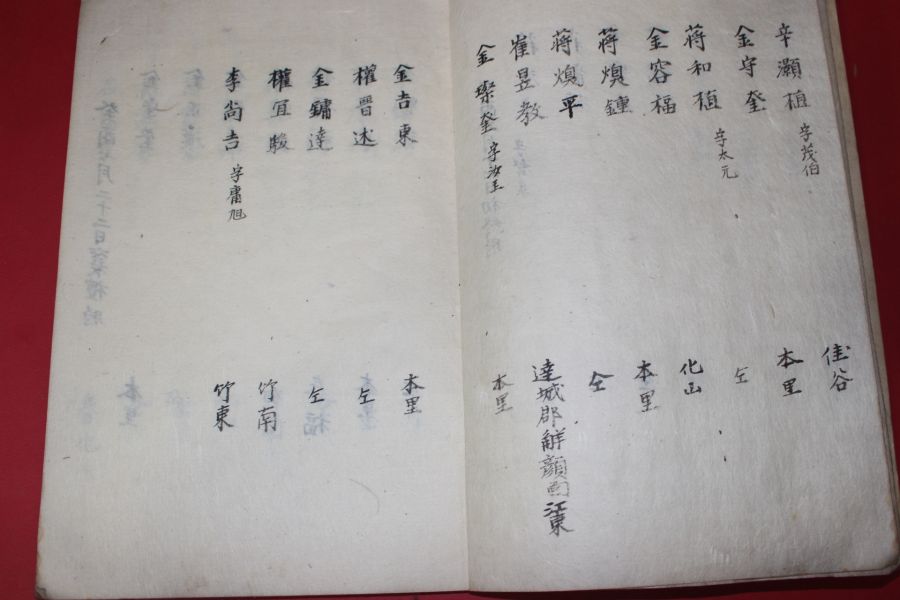 辛灝植 字茂伯 佳谷
金守奎 本里
蔣和植 字太元 仝
金容福 化山
蔣煥鍾 本里
蔣煥平 仝
崔昱敎 達城郡解顔面江東
金璨奎 字汝玉 本里
金吉東 本里
權晋述 仝
金鏞達 仝
權宜駿 竹南
李尙吉 字庸旭 竹東